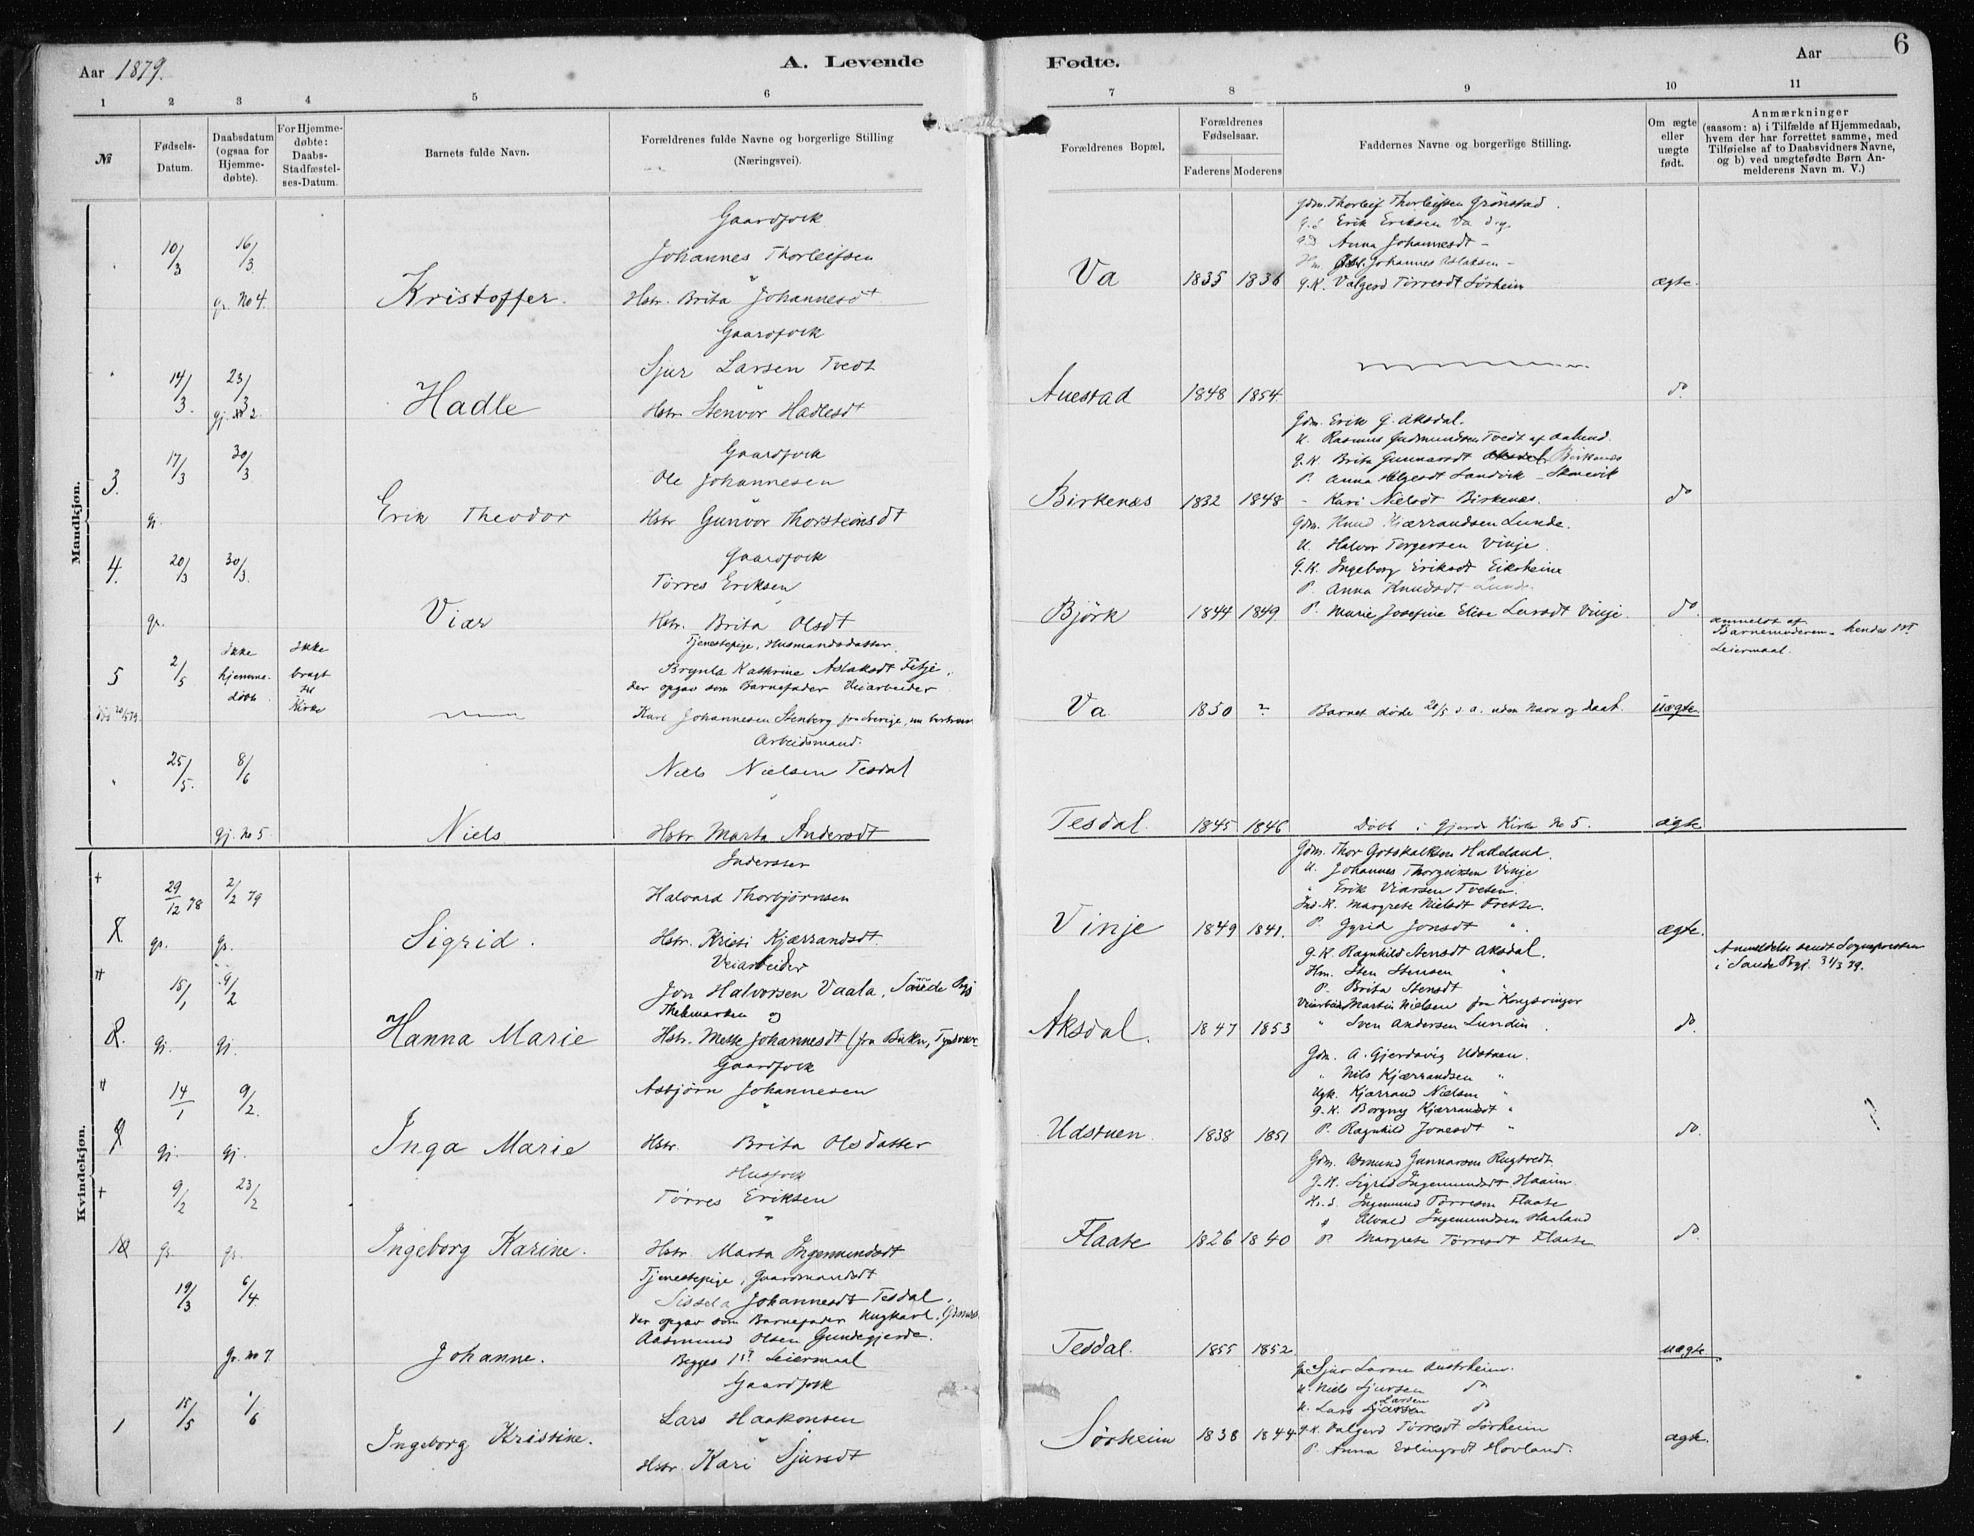 Aar 1879.
A. Levende
Fødte.
Aar
6
1 2 3 4 5 6 7 8 9 10 11
№
Fødsels-Datum.
Daabsdatum (ogsaa for Hjemme-døbte).
For Hjemme-døbte: Daabs-Stadfæstel-ses-Datum.
Barnets fulde Navn.
Forældrenes fulde Navne og borgerlige Stilling (Næringsvei).
Forældrenes Bopæl.
Forældrenes Fødselsaar.
Faderens Moderens
Faddernes Navne og borgerlige Stilling.
Om ægte eller uægte født.
Anmærkninger
(saasom: a) i Tilfælde af Hjemmedaab, hvem der har forrettet samme, med Tilføielse af to Daabsvidners Navne, og b) ved uægtefødte Børn An-melderens Navn m. V.)
Mandkjøn.
10/3 16/3 gr. No 4.
Kristoffer.
Gaardfolk
Johannes Thorleifsen
Hstr. Brita Johannesdt
Va 1835 1836
Gdm. Thorleif Thorleifsen Grönstad.
Erik Eriksen Va
Anna Johannesdt -
Johannes Aslaksen -
G.K. Valgerd Törresdt Sörheim
ægte.
14/3. 23/3 gj. No 2
Hadle
Gaardfolk
Sjur Larsen Tvedt
Hstr. Stenvor Hadlesdt
Auestad 1848 1854
do.
3. 17/3 30/3 gj.
Erik Theodor
Gaardfolk
Ole Johannesen
Hstr Gunvor Thorsteinsdt
Birkenæs 1832 1848
Gdm. Erik G. Aksdal.
U. Rasmus Gudmundsen Tvedt af
G.K. Brita Gunnarsdt Aksdal Birkenæs
P. Anna Helgesdt Sandvik - Sknevik
- Kari Nielsdt Birkenæs.
do
4. 20/3 30/3. gr.
Viær
Gaardfolk
Törres Eriksen
Hstr. Brita Olsdt
Björk 1844 1849
Gdm. Knud Kjærrandsen Lunde.
U. Halvor Torgersen Vinje.
G.K. Ingeborg Eriksdt Eiksheim
P. Anna Knudsdt Lunde
P. Marie Josefine Elise Larsdt Vinje.
do.
5 2/5
ikke hjemme-døbt
ikke bragt til Kirke
Tjenestepige, Husmandsdatter
Brynla Kathrine Aslaksdt Fitje,
der opgav som Barnefader Veiarbeider
Karl Johannesen Stenberg fra Sverige, nu
Arbeidsmand.
Va 1850 ?
Barnet døde 20/5 s. a. uden Navn og Daab.
uægte.
anmeldt af Barnemoderen - hendes 1st Leiermaal.
25/5. 8/6 gj. No 5.
Niels
Niels Nielsen Tesdal
Hstr Marta Andersdt
Tesdal. 1845 1846
Døbt i Gjerde Kirke No 5.
ægte
Kvindekjøn.
29/12 78 2/2 79 gr. gr.
Sigrid.
Inderster
Halvard Thorbjørnsen
Hstr. Kristi Kjærrandsdt.
Vinje 1849 1841.
Gdm. Thor Gotskalksen Hadeland.
U. Johannes Thorgeirsen Vinje
" Erik Viarsen Tvesen.
Ind.K. Margrete Nielsdt Frette.
P. Gyrid Jonsdt ".
ægte.
15/1 9/2 gj. gj.
Hanna Marie
Veiarbeider
Jon Halvorsen Vaala, Saude Pgj
Thelemarken og
Hstr. Mette Johannesdt (fra Bukn, Tysvær
Aksdal. 1847 1853
G.K. Ragnhild Stensdt Aksdal.
Hm. Sten Stensen "
P. Brita Stensdt "
Veiarbeider Martin Nielsen fra Kongsvinger
" Sven Andersen Lundin.
do.
Anmeldelse sendt Sognepresten i Saude Pgj. 31/3 79.
14/1 9/2. gj. gj.
Inga Marie
Gaardfolk
Asbjörn Johannesen
Hstr. Brita Olsdatter
Udstuen. 1838 1851
Gdm. A. Gjerdevig Udstuen.
" Nils Kjærrandsen "
Ugk. Kjærrand Nielsen "
G.K. Borgny Kjærrandsdt "
P. Ragnhild Jonesdt "
do.
9/2 23/2 gr. gr.
Ingeborg Karine.
Husfolk
Törres Eriksen
Hstr. Marta Ingemundsdt
Flaate 1826 1840
Gdm. Osmund Gunnarsen Rugtvedt
G.K. Sigrid Ingemundsdt Haaim.
Ingemund Törresen Flaate
" Ingemundsen Haaland
P. Margrete Törresdt Flaate
do.
19/3 6/4. gr. No 7.
Johanne.
Tjenestepige, Gaardmandsdt
Sissela Johannesdt Tesdal,
der opgav som Barnefader Ungkarl,
Aasmund Olsen Gundegjerde.
Begges 1st Leiermaal
Tesdal. 1855 1852
uægte
1 15/5 1/6
Ingeborg Kristine.
Gaardfolk
Lars Haakonsen
Hstr. Kari Sjursdt
Sörheim 1838 1844
Sjur Larsen Austrheim.
U. Niels Sjursen do
U. Lars Larsen do
G.K. Valgerd Törresdt Sörheim
P. Anna Erlingsdt Hovland.
ægte.